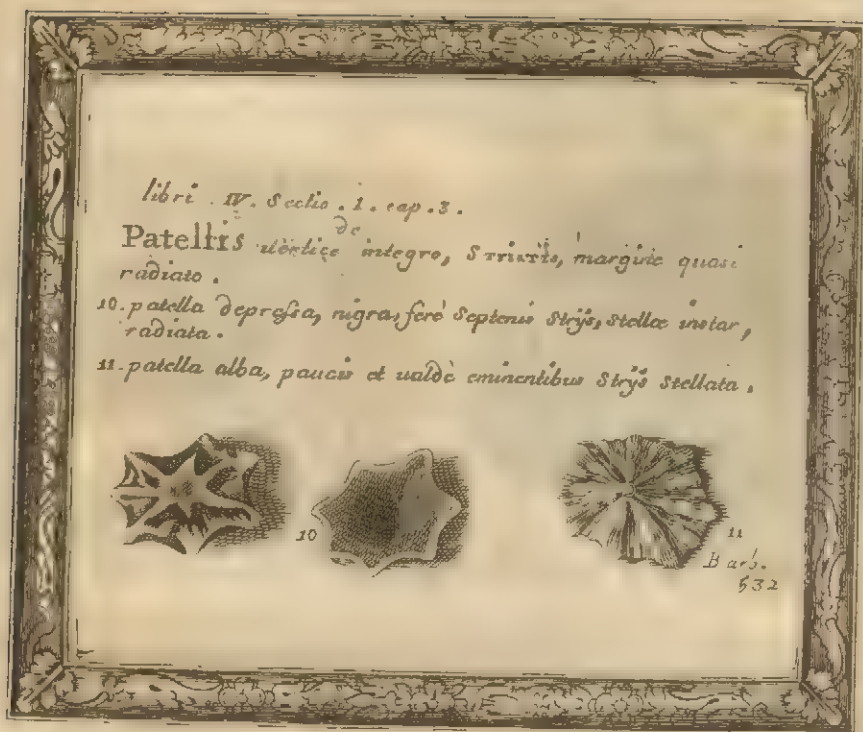 libri . IV. Sectio . 1. cap . 3 .
de
Patellis vertice integro, Striatis, margine quasi
radiato .
10. patella depreſsa, nigra, ferè Septenis Strijs, stellæ instar,
radiata .
11. patella alba, paucis et ualdè eminentibus Strijs stellata .
10
11
Barb.
532